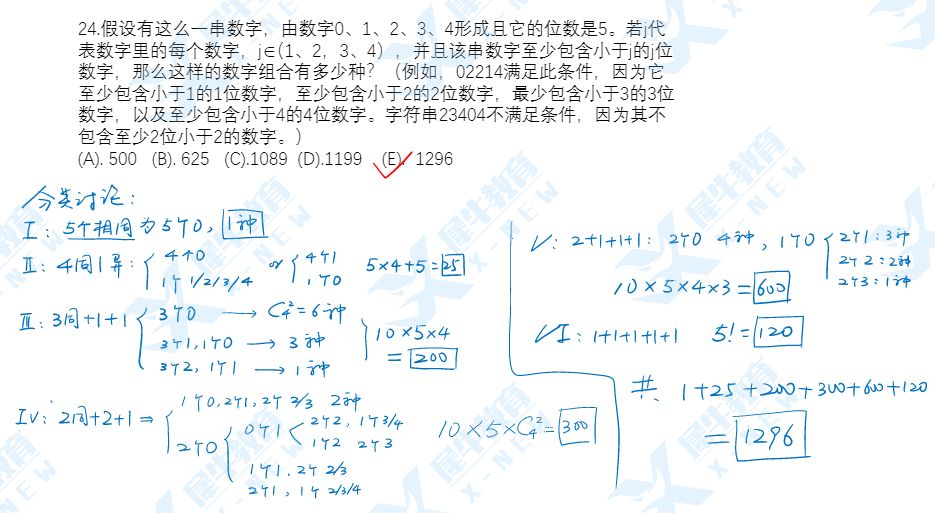 24.假设有这么一串数字，由数字0、1、2、3、4形成且它的位数是5。若j代
表数字里的每个数字，j∈(1、2，3、4），并且该串数字至少包含小于j的j位
数字，那么这样的数字组合有多少种？（例如，02214满足此条件，因为它
至少包含小于1的1位数字，至少包含小于2的2位数字，最少包含小于3的3位
数字，以及至少包含小于4的4位数字。字符串23404不满足条件，因为其不
包含至少2位小于2的数字。）
(A). 500 (B). 625 (C).1089 (D).1199 (E). 1296
分类讨论：
I：5个相同为5个0，1种
II：4同1异：4个0 or 4个1 5×4+5=25
1个1/2/3/4 1个0
III：3同+1+1 3个0 → C₄²=6种
3个1,1个0 → 3种
3个2,1个1 → 1种
10×5×4
=200
IV：2同+2+1 ⇒ 1个0,2个1,2个2/3 2种
2个0 0个1 2个2，1个3/4
1个2 2个3
1个1．2个2/3
2个1，1个2/3/4
10×5×C₄²=300
V：2+1+1+1：2个0 4种，1个0 2个1：3种
2个2：2种
2个3：1种
10×5×4×3=600
VI：1+1+1+1+1 5!=120
共 1+25+200+300+600+120
=1296
犀牛教育
X-NEW